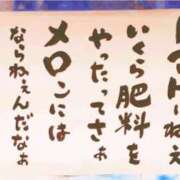 ねえ
いくら肥料を
やったってさぁ
メロンには
ならねえんだなぁ